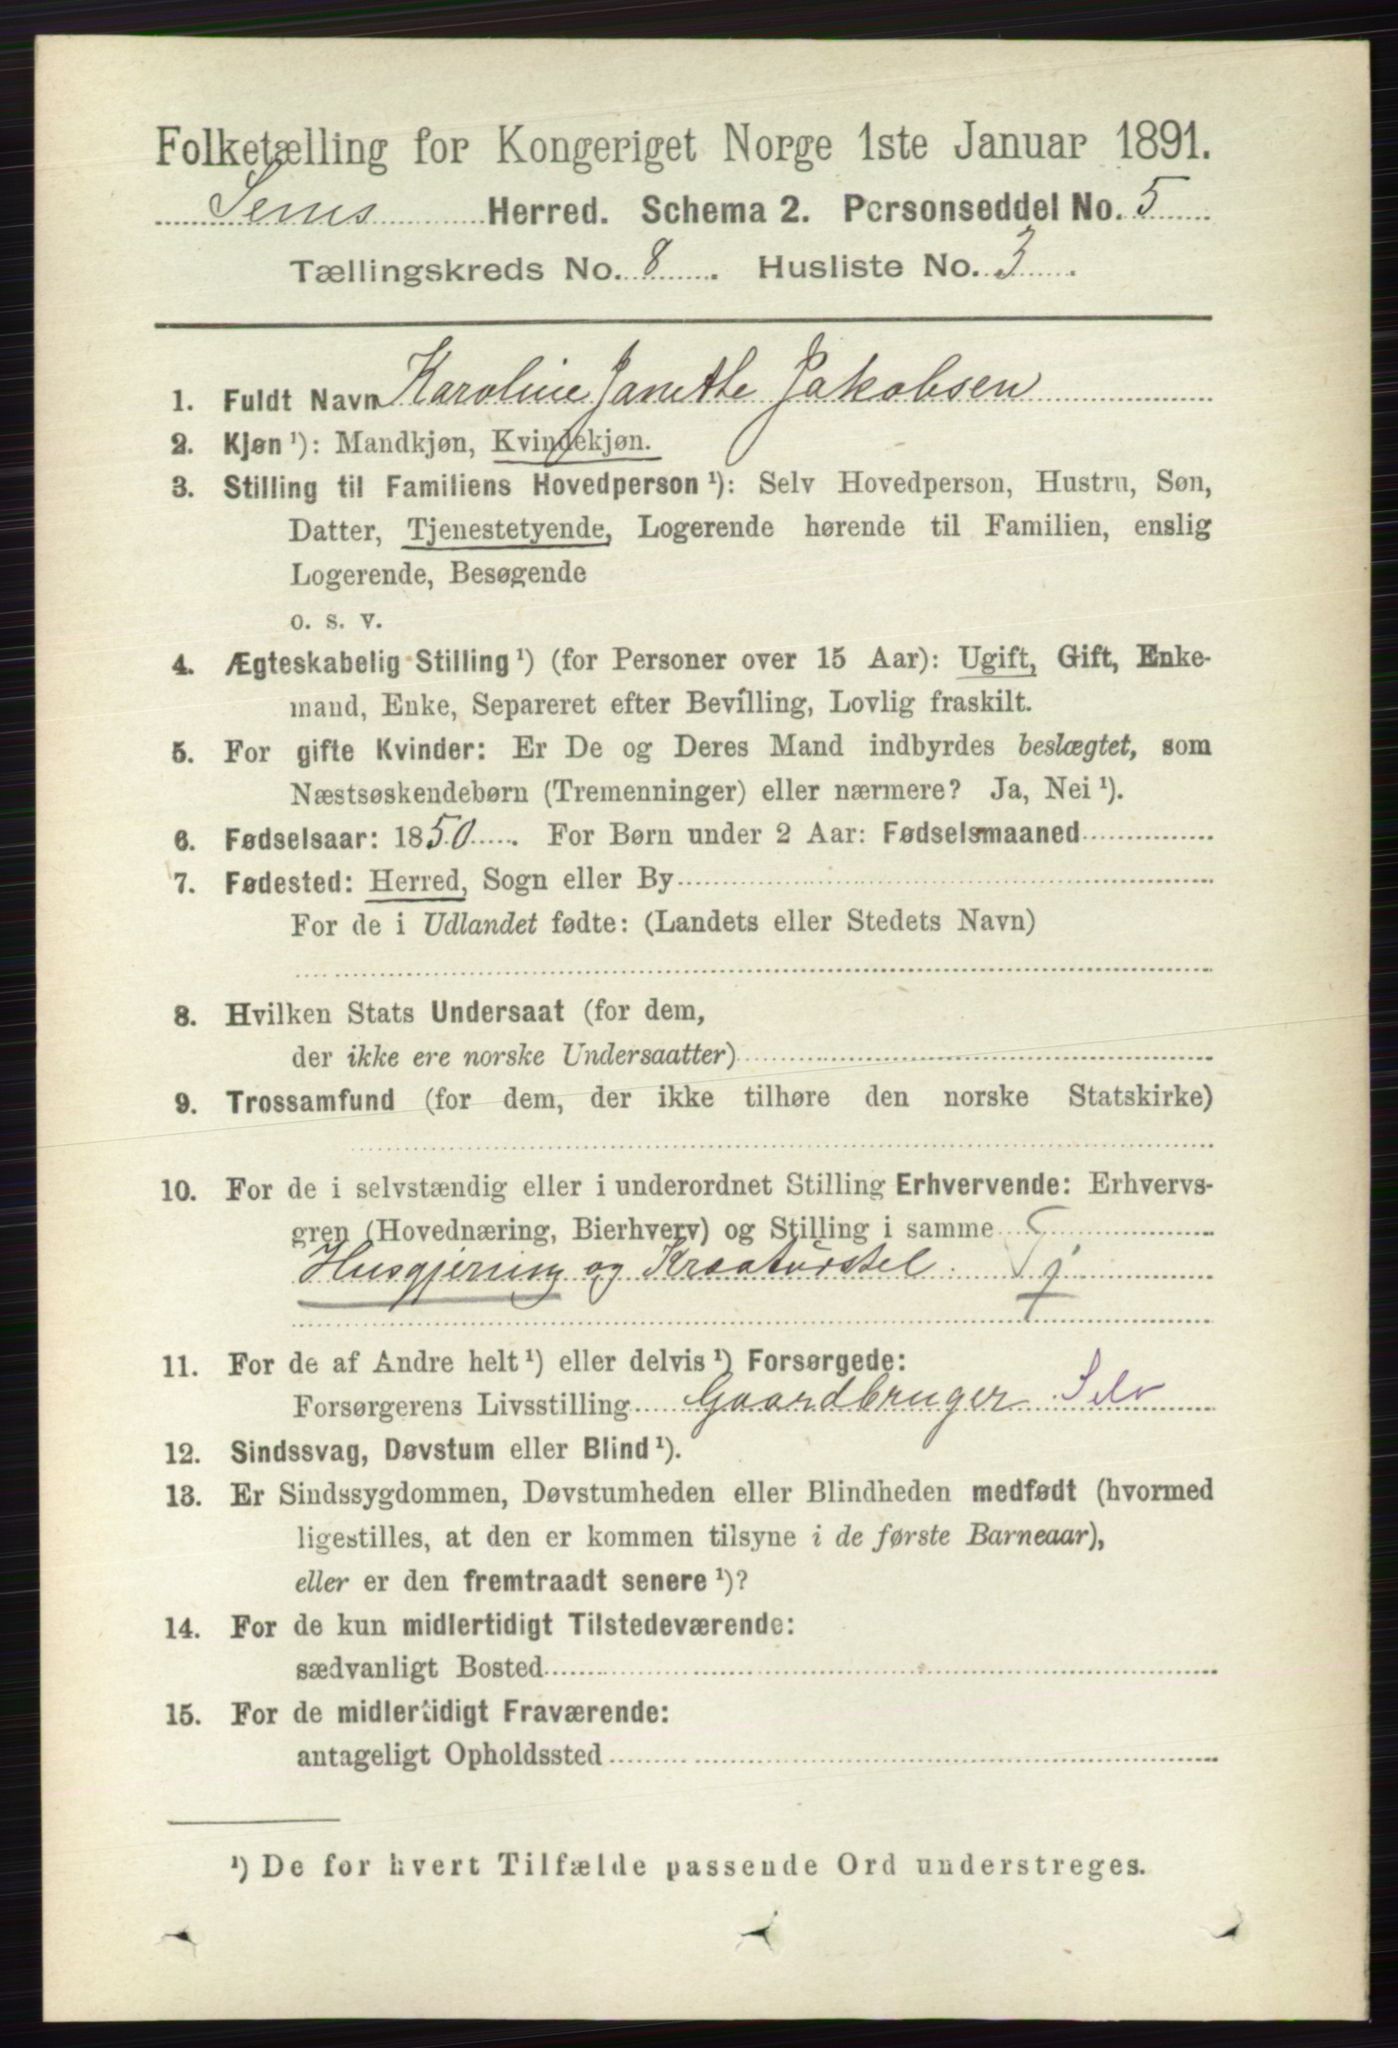 Folketælling for Kongeriget Norge 1ste Januar 1891.
Sems Herred. Schema 2. Personseddel No. 5
Tællingskreds No. 8. Husliste No. 3.
1. Fuldt Navn Karoline Janette Jakobsen
2. Kjøn ¹): Mandkjøn, Kvindekjøn.
3. Stilling til Familiens Hovedperson ¹): Selv Hovedperson, Hustru, Søn,
Datter, Tjenestetyende, Logerende hørende til Familien, enslig
Logerende, Besøgende
o. s. v.
4. Ægteskabelig Stilling ¹) (for Personer over 15 Aar): Ugift, Gift, Enke-
mand, Enke, Separeret efter Bevilling, Lovlig fraskilt.
5. For gifte Kvinder: Er De og Deres Mand indbyrdes beslægtet, som
Næstsøskendebørn (Tremenninger) eller nærmere? Ja, Nei ¹).
6. Fødselsaar: 1850. For Børn under 2 Aar: Fødselsmaaned
7. Fødested: Herred, Sogn eller By
For de i Udlandet fødte: (Landets eller Stedets Navn)
8. Hvilken Stats Undersaat (for dem,
der ikke ere norske Undersaatter)
9. Trossamfund (for dem, der ikke tilhøre den norske Statskirke)
10. For de i selvstændig eller i underordnet Stilling Erhvervende: Erhvervs-
gren (Hovednæring, Bierhverv) og Stilling i samme
Husgjerning og Kreaturstel. Tj
11. For de af Andre helt ¹) eller delvis ¹) Forsørgede:
Forsørgerens Livsstilling Gaardbruger Selv
12. Sindssvag, Døvstum eller Blind ¹).
13. Er Sindssygdommen, Døvstumheden eller Blindheden medfødt (hvormed
ligestilles, at den er kommen tilsyne i de første Barneaar),
eller er den fremtraadt senere ¹)?
14. For de kun midlertidigt Tilstedeværende:
sædvanligt Bosted
15. For de midlertidigt Fraværende:
antageligt Opholdssted
¹) De for hvert Tilfælde passende Ord understreges.